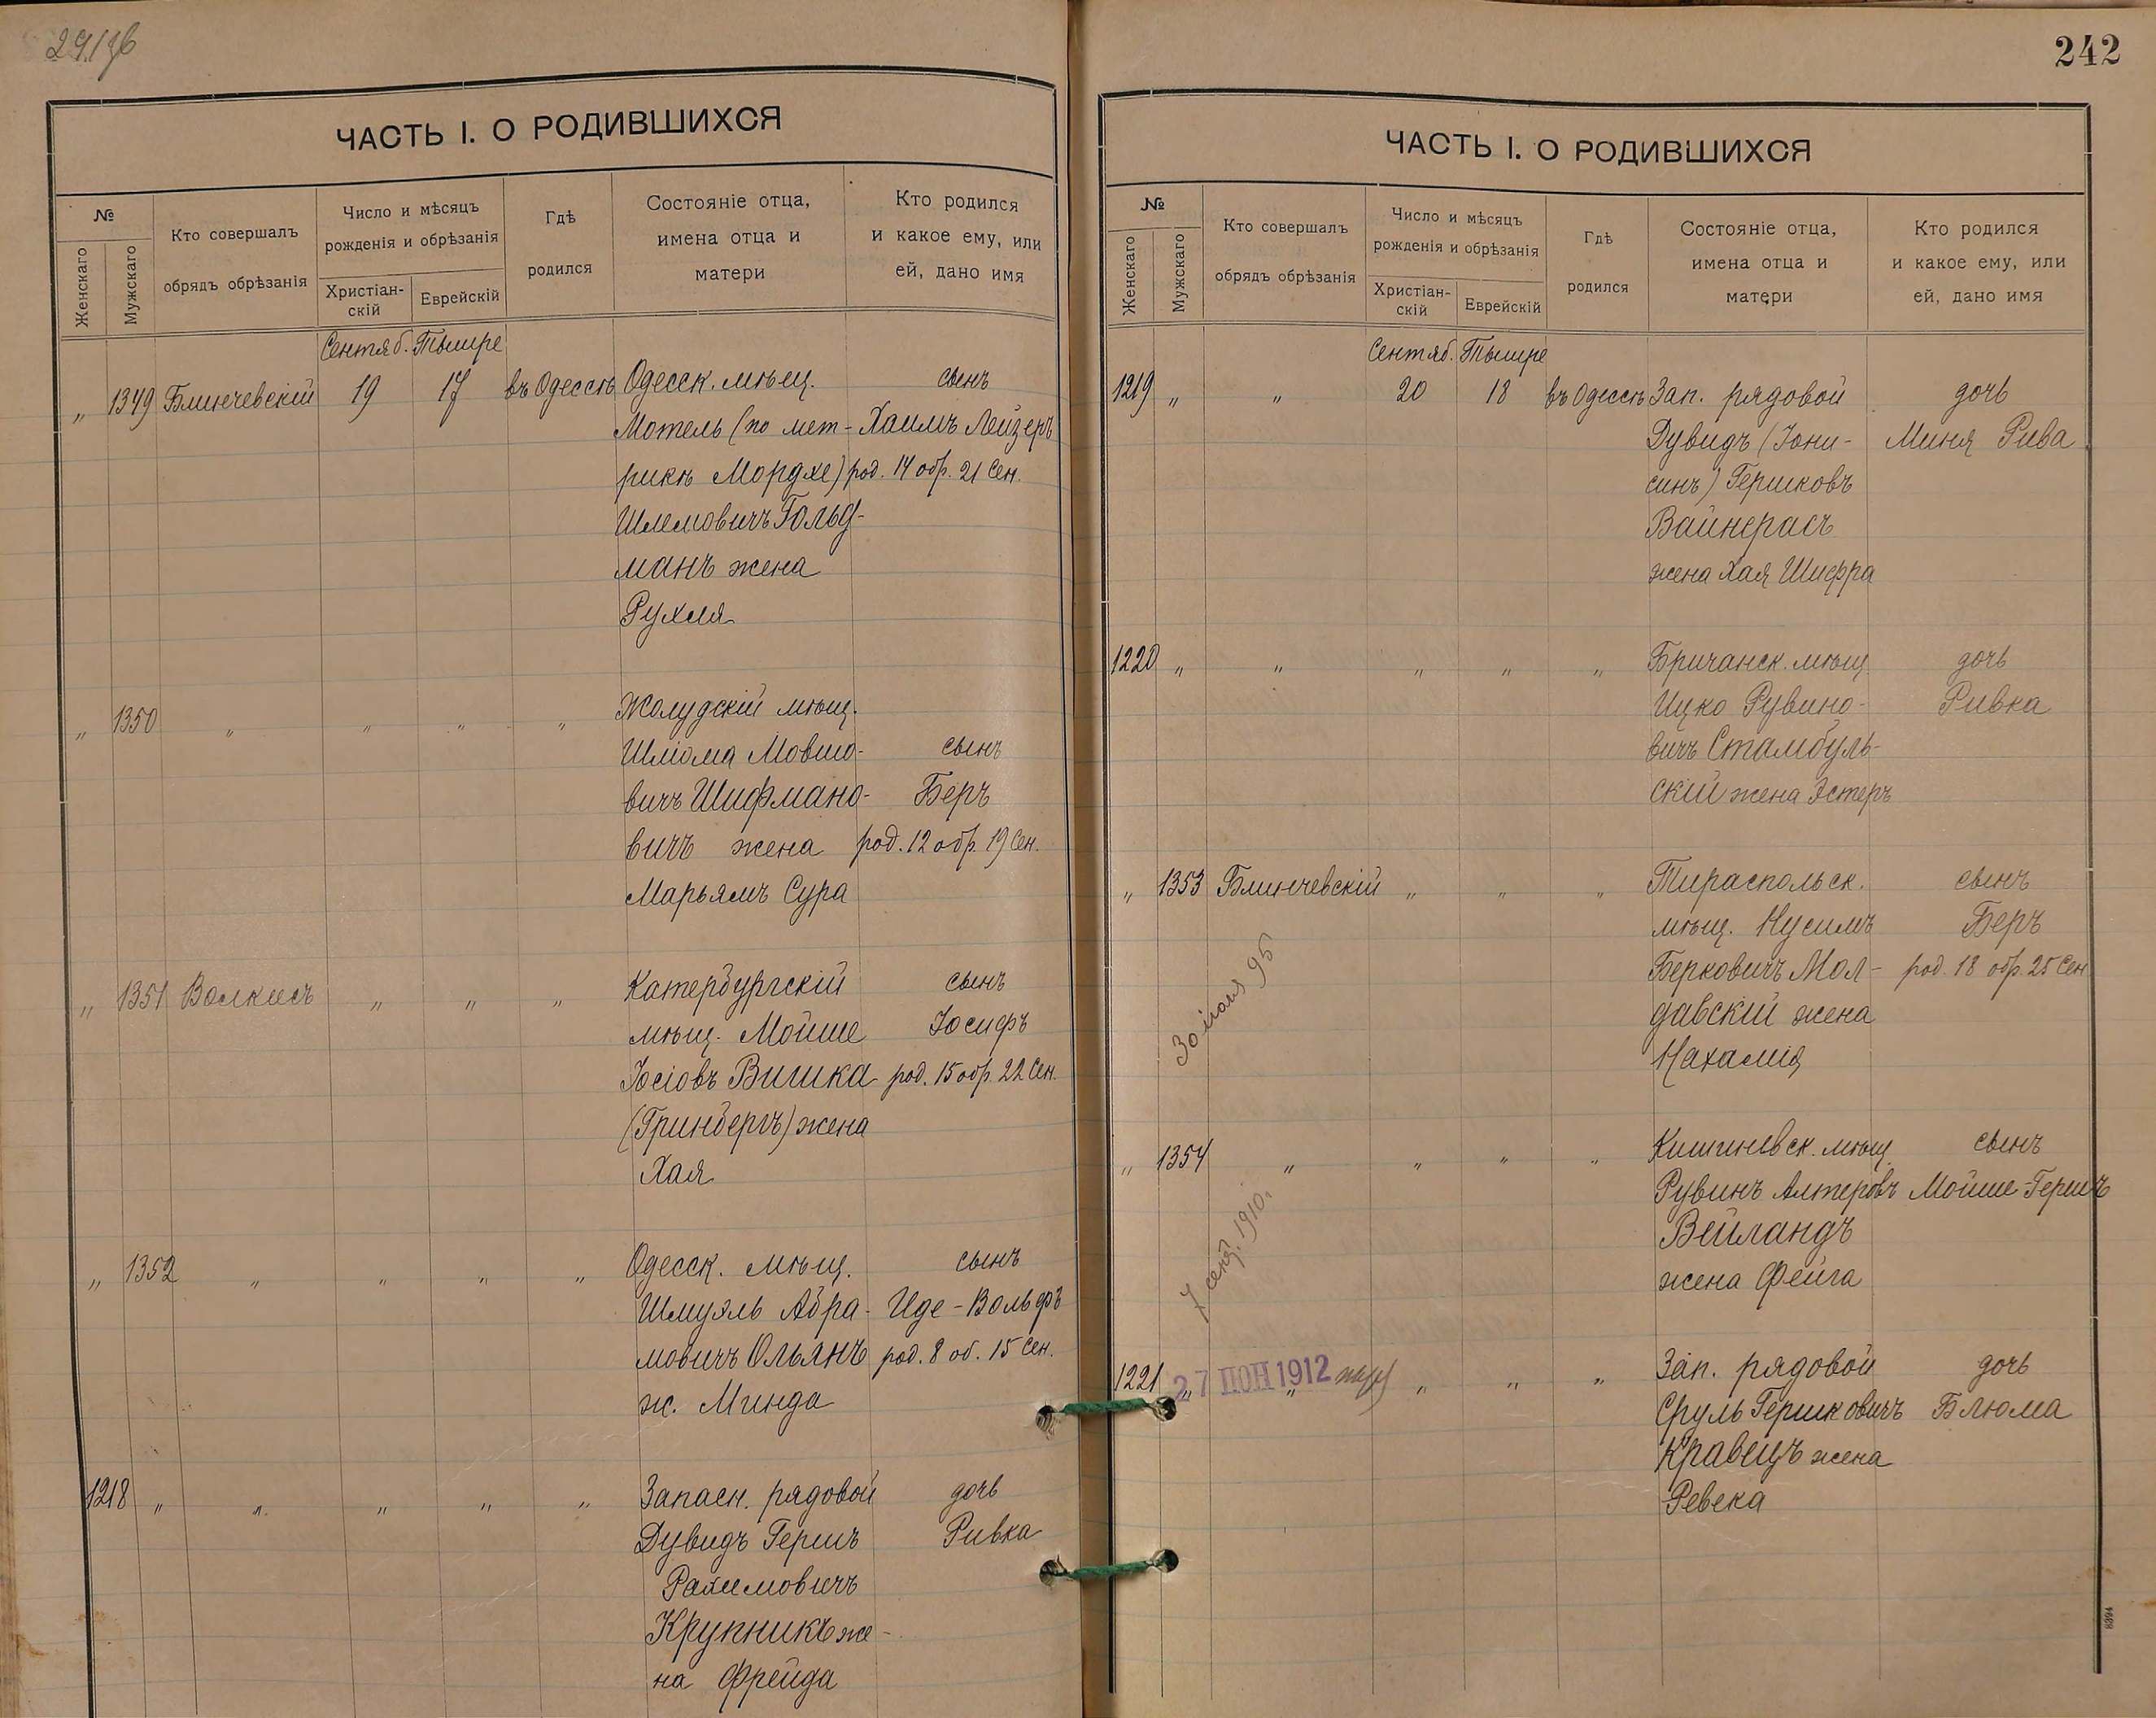 29136
ЧАСТЬ I. О РОДИВШИХСЯ
№
Женскаго
Мужскаго
Кто совершалъ
обрядъ обрѣзанія
Число и мѣсяцъ
рожденія и обрѣзанія
Христіан-
скій
Еврейскій
Гдѣ
родился
Состояніе отца,
имена отца и
матери
Кто родился
и какое ему, или
ей, дано имя
Сентяб. Тышре
„ 1349 Блинчевскій 19 17 въ Одессѣ Одесск. мѣщ. сынъ
Мотель (по мет- Хаимъ Лейзеръ
рикѣ Мордхе) род. 14 обр. 21 Сен.
Шлемовичъ Гольд-
манъ жена
Рухля
„ 1350 „ „ „ „ Жолудскій мѣщ.
Шліома Мовшо- сынъ
вичъ Шифмано- Беръ
вичъ жена род. 12 обр. 19 Сен.
Марьямъ Сура
„ 1351 Волкисъ „ „ „ Катербургскій сынъ
мѣщ. Мойше Іосифъ
Іосіовъ Вишка род. 15 обр. 22 Сен.
(Гринбергъ) жена
Хая
„ 1352 „ „ „ „ Одесск. мѣщ. сынъ
Шмуэль Абра- Иде-Вольфъ
мовичъ Ольянъ род. 8 об. 15 Сен.
ж. Минда
1218 „ „ „ „ „ Запасн. рядовой дочь
Дувидъ Гершъ Ривка
Рахмовичъ
Крупникъ же-
на Фрейда
242
ЧАСТЬ I. О РОДИВШИХСЯ
№
Женскаго
Мужскаго
Кто совершалъ
обрядъ обрѣзанія
Число и мѣсяцъ
рожденія и обрѣзанія
Христіан-
скій
Еврейскій
Гдѣ
родился
Состояніе отца,
имена отца и
матери
Кто родился
и какое ему, или
ей, дано имя
Сентяб. Тышре
1219 „ „ 20 18 въ Одессѣ Зап. рядовой дочь
Дувидъ (Іони- Миня Рива
синъ) Гершковъ
Вайнерасъ
жена Хая Шифра
1220 „ „ „ „ „ Бричанск. мѣщ. дочь
Ицко Рувино- Ривка
вичъ Стамбуль-
скій жена Эстеръ
„ 1353 Блинчевскій „ „ „ Тираспольск. сынъ
мѣщ. Нусимъ Беръ
Берковичъ Мол- род. 18 обр. 25 Сен
давскій жена
Нахамія
30 іюля 95
„ 1354 „ „ „ „ Кишиневск. мѣщ. сынъ
Рувинъ Алтеровъ Мойше-Гершъ
Вейландъ
жена Фейга
7 сент. 1910.
1221 „ „ „ „ „ Зап. рядовой дочь
27 ІЮН 1912
Сруль Гершковичъ Блюма
Кравецъ жена
Ревека
8394